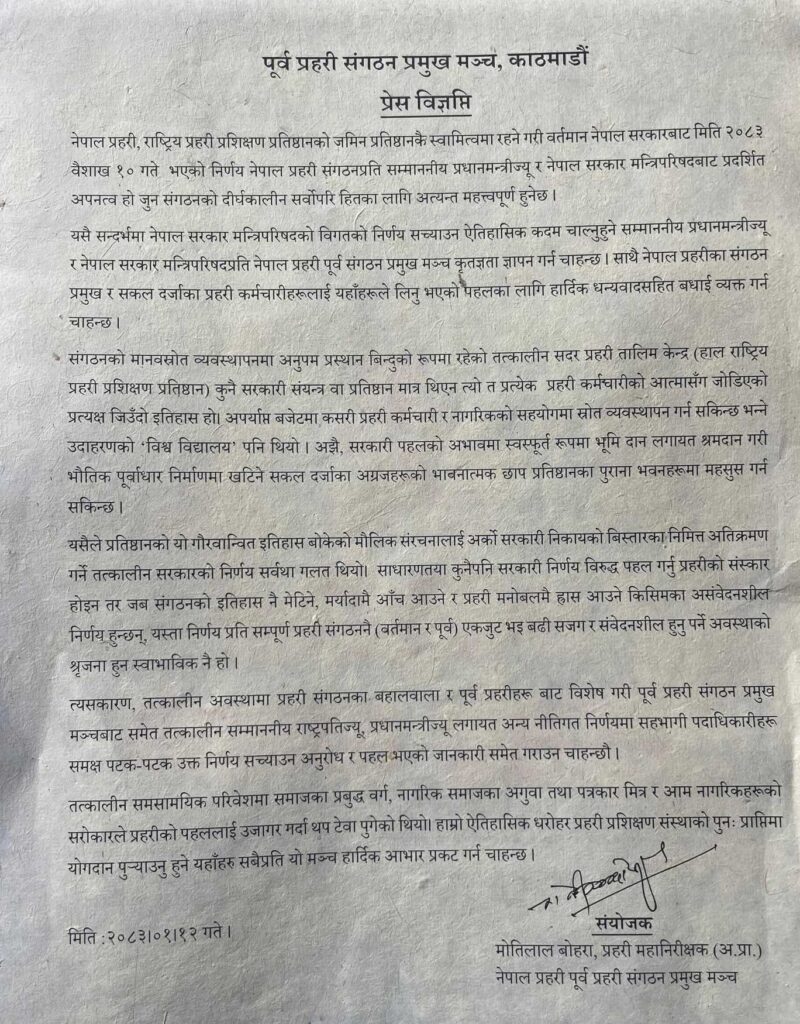 पूर्व प्रहरी संगठन प्रमुख मञ्च, काठमाडौं
प्रेस विज्ञप्ति
नेपाल प्रहरी, राष्ट्रिय प्रहरी प्रशिक्षण प्रतिष्ठानको जमिन प्रतिष्ठानकै स्वामित्वमा रहने गरी वर्तमान नेपाल सरकारबाट मिति २०८३
वैशाख १० गते भएको निर्णय नेपाल प्रहरी संगठनप्रति सम्माननीय प्रधानमन्त्रीज्यू र नेपाल सरकार मन्त्रिपरिषदबाट प्रदर्शित
अपनत्व हो जुन संगठनको दीर्घकालीन सर्वोपरि हितका लागि अत्यन्त महत्त्वपूर्ण हुनेछ ।
यसै सन्दर्भमा नेपाल सरकार मन्त्रिपरिषदको विगतको निर्णय सच्याउन ऐतिहासिक कदम चाल्नुहुने सम्माननीय प्रधानमन्त्रीज्यू
र नेपाल सरकार मन्त्रिपरिषदप्रति नेपाल प्रहरी पूर्व संगठन प्रमुख मञ्च कृतज्ञता ज्ञापन गर्न चाहन्छ । साथै नेपाल प्रहरीका संगठन
प्रमुख र सकल दर्जाका प्रहरी कर्मचारीहरूलाई यहाँहरूले लिनु भएको पहलका लागि हार्दिक धन्यवादसहित बधाई व्यक्त गर्न
चाहन्छ ।
संगठनको मानवस्रोत व्यवस्थापनमा अनुपम प्रस्थान बिन्दुको रूपमा रहेको तत्कालीन सदर प्रहरी तालिम केन्द्र (हाल राष्ट्रिय
प्रहरी प्रशिक्षण प्रतिष्ठान) कुनै सरकारी संयन्त्र वा प्रतिष्ठान मात्र थिएन त्यो त प्रत्येक प्रहरी कर्मचारीको आत्मासँग जोडिएको
प्रत्यक्ष जिउँदो इतिहास हो। अपर्याप्त बजेटमा कसरी प्रहरी कर्मचारी र नागरिकको सहयोगमा स्रोत व्यवस्थापन गर्न सकिन्छ भन्ने
उदाहरणको ‘विश्व विद्यालय’ पनि थियो । अझै, सरकारी पहलको अभावमा स्वस्फूर्त रूपमा भूमि दान लगायत श्रमदान गरी
भौतिक पूर्वाधार निर्माणमा खटिने सकल दर्जाका अग्रजहरूको भाबनात्मक छाप प्रतिष्ठानका पुराना भवनहरूमा महसुस गर्न
सकिन्छ ।
यसैले प्रतिष्ठानको यो गौरवान्वित इतिहास बोकेको मौलिक संरचनालाई अर्को सरकारी निकायको बिस्तारका निमित्त अतिक्रमण
गर्ने तत्कालीन सरकारको निर्णय सर्वथा गलत थियो। साधारणतया कुनैपनि सरकारी निर्णय विरुद्ध पहल गर्नु प्रहरीको संस्कार
होइन तर जब संगठनको इतिहास नै मेटिने, मर्यादामै आँच आउने र प्रहरी मनोबलमै ह्रास आउने किसिमका असंवेदनशील
निर्णय हुन्छन्, यस्ता निर्णय प्रति सम्पूर्ण प्रहरी संगठननै (वर्तमान र पूर्व) एकजुट भइ बढी सजग र संवेदनशील हुनु पर्ने अवस्थाको
श्रृजना हुन स्वाभाविक नै हो ।
त्यसकारण, तत्कालीन अवस्थामा प्रहरी संगठनका बहालवाला र पूर्व प्रहरीहरू बाट विशेष गरी पूर्व प्रहरी संगठन प्रमुख
मञ्चबाट समेत तत्कालीन सम्माननीय राष्ट्रपतिज्यू, प्रधानमन्त्रीज्यू लगायत अन्य नीतिगत निर्णयमा सहभागी पदाधिकारीहरू
समक्ष पटक-पटक उक्त निर्णय सच्याउन अनुरोध र पहल भएको जानकारी समेत गराउन चाहन्छौ ।
तत्कालीन समसामयिक परिवेशमा समाजका प्रबुद्ध वर्ग, नागरिक समाजका अगुवा तथा पत्रकार मित्र र आम नागरिकहरूको
सरोकारले प्रहरीको पहललाई उजागर गर्दा थप टेवा पुगेको थियो। हाम्रो ऐतिहासिक धरोहर प्रहरी प्रशिक्षण संस्थाको पुनः प्राप्तिमा
योगदान पुऱ्याउनु हुने यहाँहरु सबैप्रति यो मञ्च हार्दिक आभार प्रकट गर्न चाहन्छ ।
संयोजक
मिति :२०८३।०१।१२ गते ।
मोतिलाल बोहरा, प्रहरी महानिरीक्षक (अ.प्रा.)
नेपाल प्रहरी पूर्व प्रहरी संगठन प्रमुख मञ्च